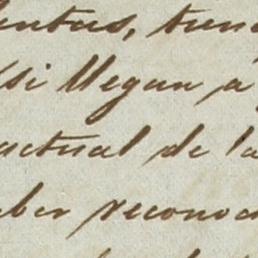 entus, tun
si llegan á
actual de la
ber reconoc